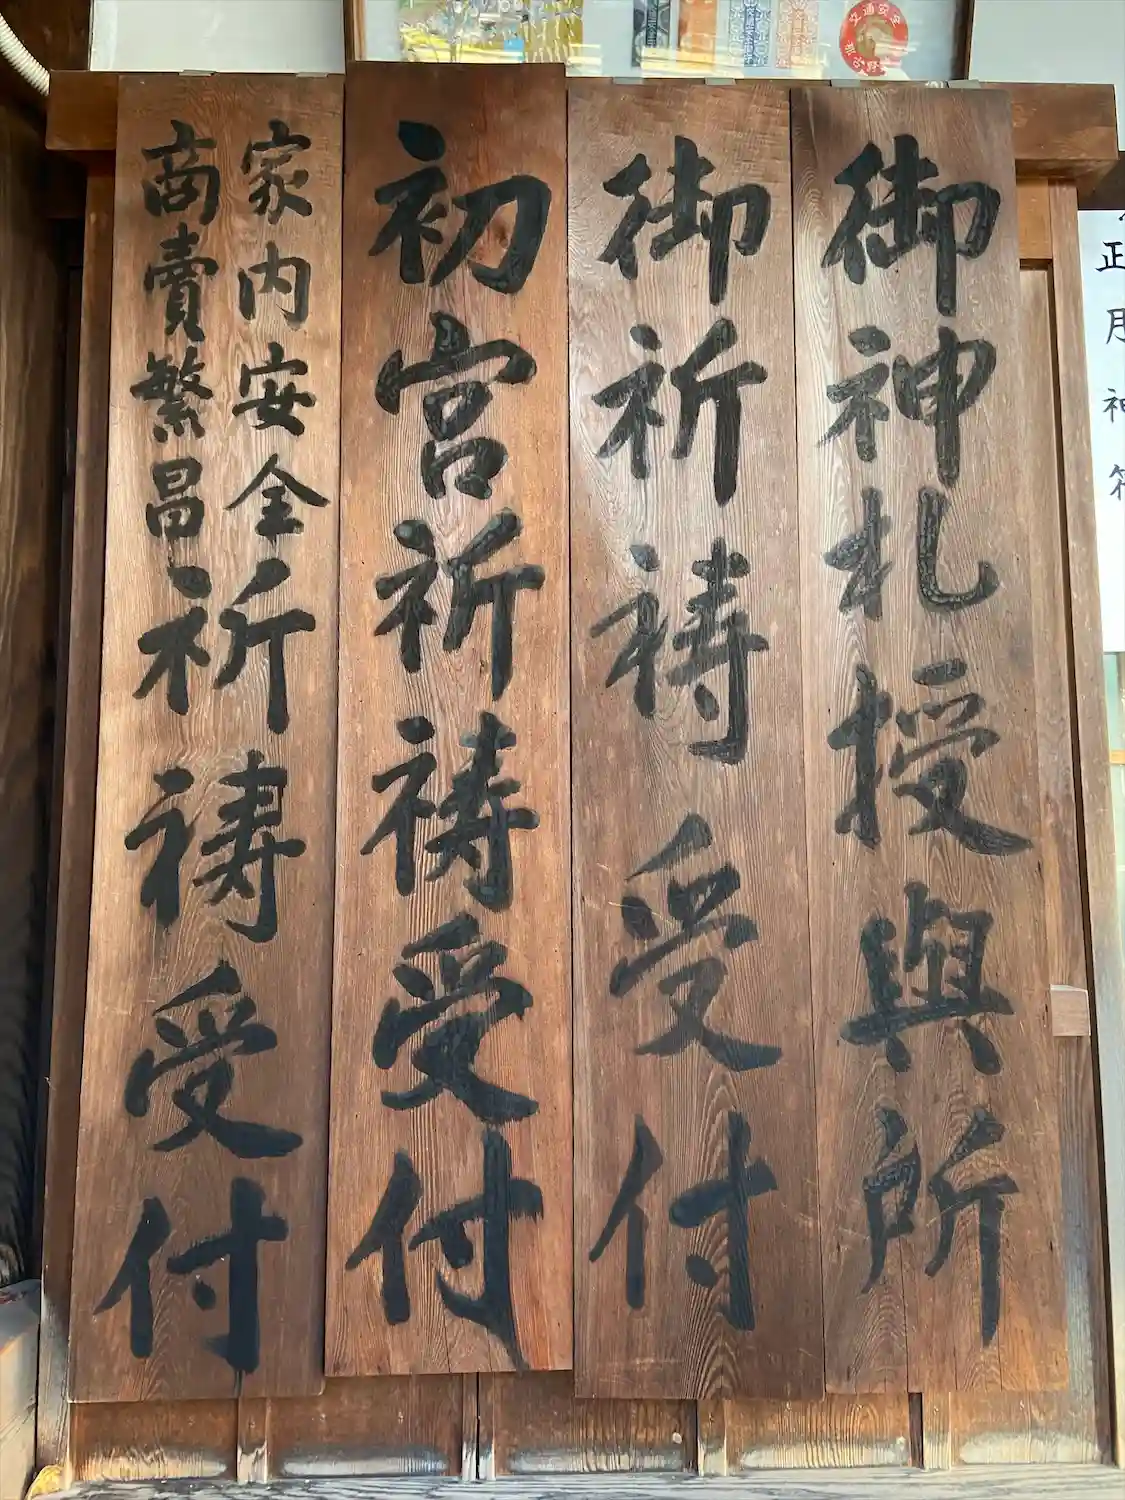 御神札授與所
御祈祷受付
初宮祈祷受付
家内安全
商賣繁昌
祈祷受付
交通安全
正月神符